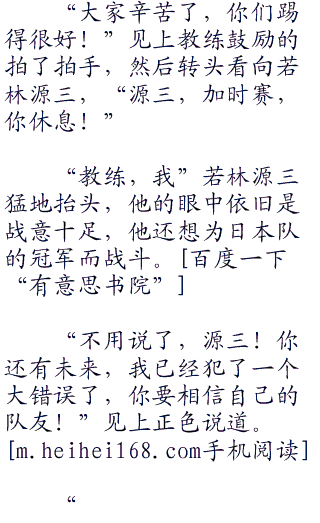 “大家辛苦了，你们踢
得很好！”见上教练鼓励的
拍了拍手，然后转头看向若
林源三，“源三，加时赛，
你休息！”
“教练，我”若林源三
猛地抬头，他的眼中依旧是
战意十足，他还想为日本队
的冠军而战斗。[百度一下
“有意思书院”]
“不用说了，源三！你
还有未来，我已经犯了一个
大错误了，你要相信自己的
队友！”见上正色说道。
[m.heihei168.com手机阅读]
“